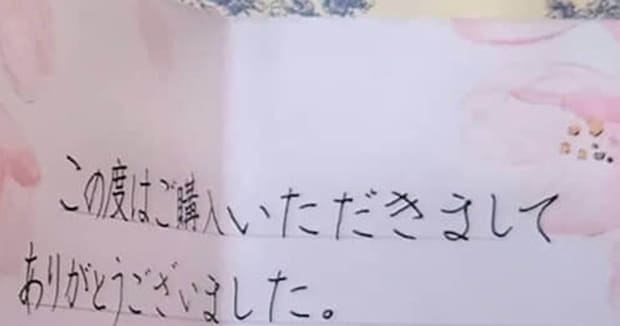 この度はご購入いただきまして
ありがとうございました。